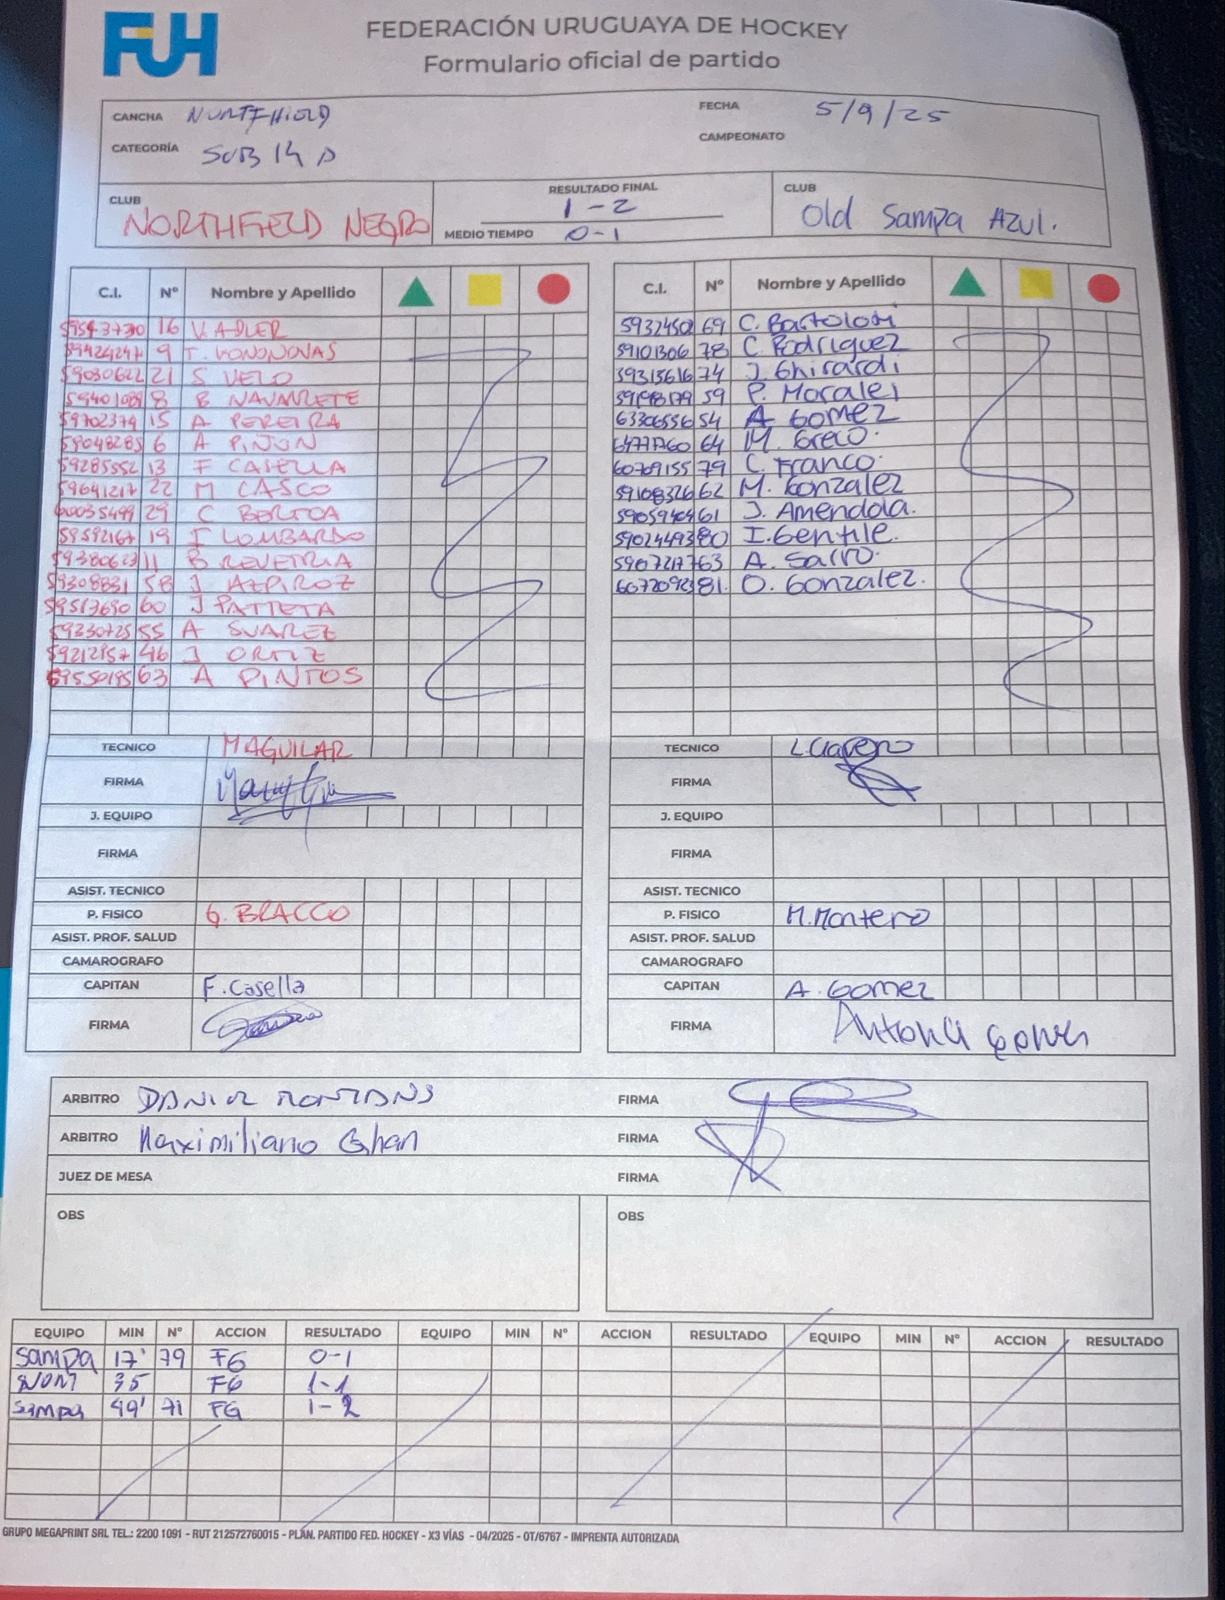 FUH
FEDERACIÓN URUGUAYA DE HOCKEY
Formulario oficial de partido
CANCHA NORTHFIELD FECHA 5/9/25
CATEGORÍA SUB 14 D CAMPEONATO
CLUB NORTHFIELD NEGRO
RESULTADO FINAL 1-2
MEDIO TIEMPO 0-1
CLUB Old Sampa Azul.
C.I. Nº Nombre y Apellido
16 V. ADLER
9 T.
59030622 21 S VELO
8 B NAVARRETE
59702379 15 A PEREIRA
59048285 6 A PIÑON
59285552 13 F CASELLA
59641217 22 M CASCO
29 C BERTOA
59592167 19 F LOMBARDO
59380623 11 B REVETRIA
59308831 58 J AZPIROZ
59517690 60 J PATTETA
59330725 55 A SUAREZ
46 J ORTIZ
63 A PINTOS
TECNICO M AGUILAR
FIRMA
J. EQUIPO
FIRMA
ASIST. TECNICO
P. FISICO G. BRACCO
ASIST. PROF. SALUD
CAMAROGRAFO
CAPITAN F. Casella
FIRMA
C.I. Nº Nombre y Apellido
69 C. Bartolotti
59101306 78 C. Rodriguez
59315616 74 J. Ghirardi
59 P. Morales
63306556 54 A Gomez
64 M. Greco.
60769155 79 C. Franco.
59108326 62 M. Gonzalez
61 J. Amendola.
59024493 80 I. Gentile.
63 A. Sarro.
81. O. Gonzalez.
TECNICO L. Clavero
FIRMA
J. EQUIPO
FIRMA
ASIST. TECNICO
P. FISICO M. Montero
ASIST. PROF. SALUD
CAMAROGRAFO
CAPITAN A. Gomez
FIRMA
ARBITRO DANIEL FIRMA
ARBITRO Maximiliano Ghan FIRMA
JUEZ DE MESA FIRMA
OBS OBS
EQUIPO MIN Nº ACCION RESULTADO EQUIPO MIN Nº ACCION RESULTADO EQUIPO MIN Nº ACCION RESULTADO
Sampa 17' 79 FG 0-1
NORT 35 FG 1-1
Sampa 49' 71 FG 1-2
GRUPO MEGAPRINT SRL TEL.: 2200 1091 - RUT 212572760015 - PLAN. PARTIDO FED. HOCKEY - X3 VÍAS - 04/2025 - OT/6767 - IMPRENTA AUTORIZADA